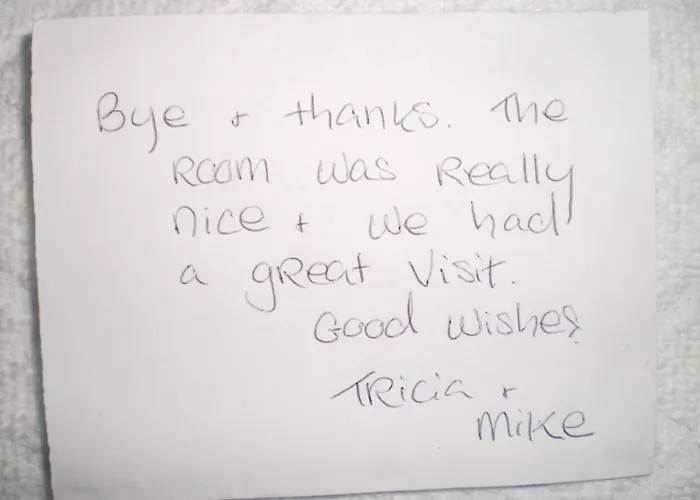 Bye + thanks. The
Room was Really
nice + we had
a gReat Visit.
Good wishes
TRicia +
MiKe